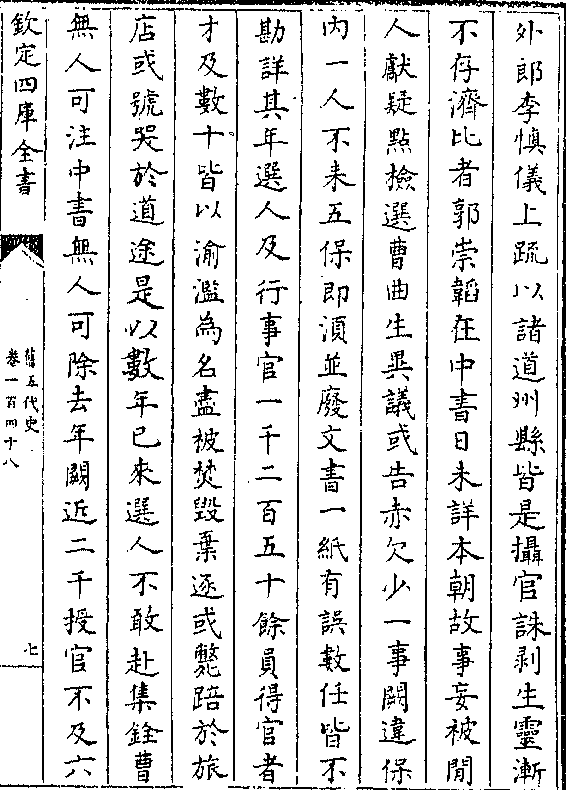 外郎李慎儀上疏以諸道州縣皆是攝官誅剥生靈漸
不存濟比者郭崇韜在中書日未詳本朝故事妄被閒
人獻疑點檢選曹曲生異議或告赤欠少一事闕違保
内一人不来五保即須並廢文書一紙有誤數任皆不
勘詳其年選人及行事官一千二百五十餘員得官者
才及數十皆以渝濫為名盡被焚毀棄逐或斃踣於旅
店或號哭於道途是以數年已來選人不敢赴集銓曹
無人可注中書無人可除去年闕近二千授官不及六
欽定四庫全書
舊五代史
卷一百四十八
七